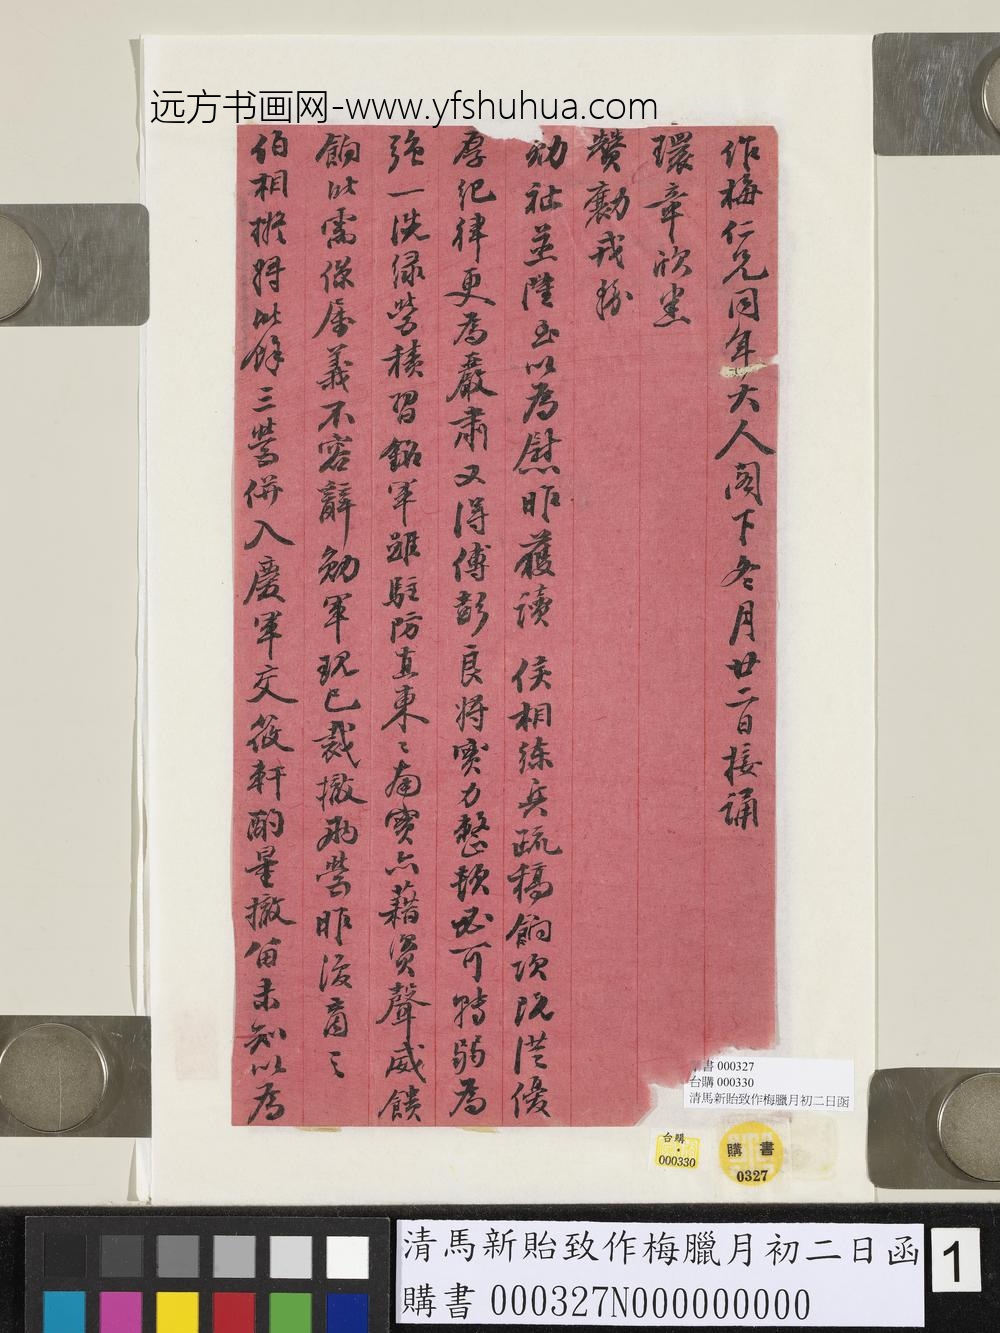 远方书画网-www.yfshuhua.com
作梅仁兄同年大人阁下冬月廿二日接诵
環章欣悉
贊勷戎
勛祉並陞至以為慰昨獲讀 侯相練兵疏稿餉項既從優
厚紀律更為嚴肅又得傅彭良將實力整頓必可轉弱為
強一洗綠營積習銘軍雖駐防直東〻南實亦藉資聲威饋
餉此需保屬義不容辭勛軍現已裁撤兩營昨復商之
伯相擬將此餘三營併入慶軍交筱軒酌量撤留未知以為
購書 000327
台購 000330
清馬新貽致作梅臘月初二日函
台購
000330
購書
0327
清馬新貽致作梅臘月初二日函
購書 000327N000000000
1